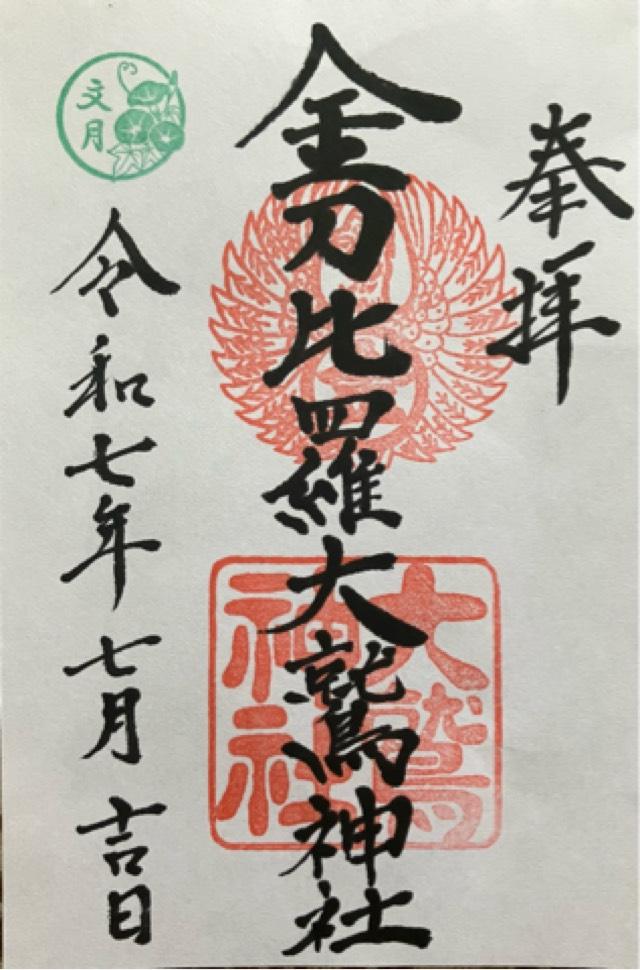 奉拝
金刀比羅大鷲神社
大鷲
神社
文月
令和七年七月吉日